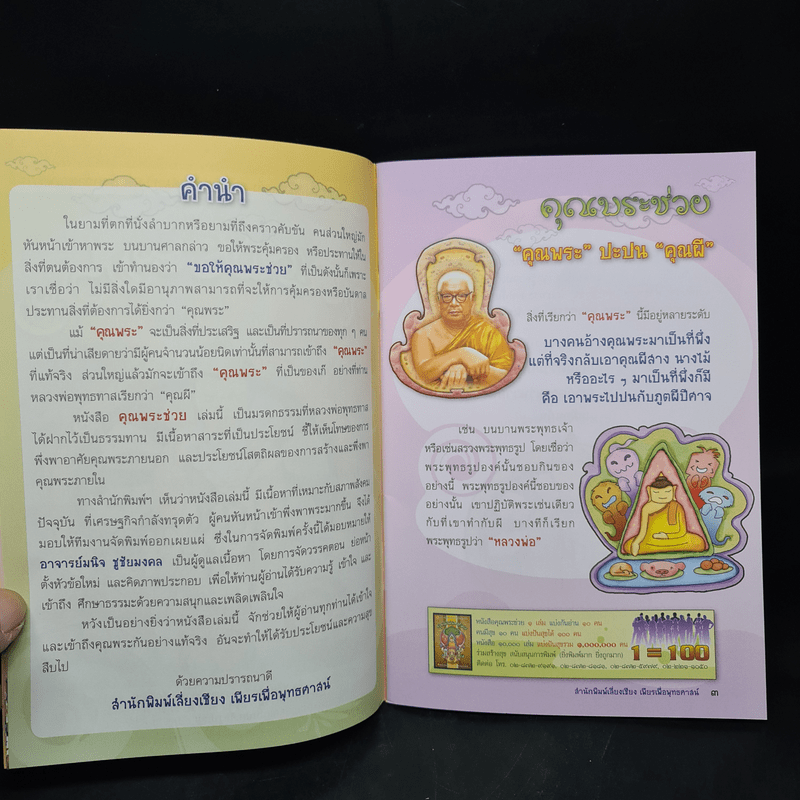 คำนำ
ในยามที่ตกที่นั่งลำบากหรือยามที่ถึงคราวคับขัน คนส่วนใหญ่มัก
หันหน้าเข้าหาพระ บนบานศาลกล่าว ขอให้พระคุ้มครอง หรือประทานให้ใน
สิ่งที่ตนต้องการ เข้าทำนองว่า “ขอให้คุณพระช่วย” ที่เป็นดังนั้นก็เพราะ
เราเชื่อว่า ไม่มีสิ่งใดมีอานุภาพสามารถที่จะให้การคุ้มครองหรือบันดาล
ประทานสิ่งที่ต้องการได้ยิ่งกว่า “คุณพระ”
แม้ “คุณพระ” จะเป็นสิ่งที่ประเสริฐ และเป็นที่ปรารถนาของทุก ๆ คน
แต่เป็นที่น่าเสียดายว่ามีผู้คนจำนวนน้อยนิดเท่านั้นที่สามารถเข้าถึง “คุณพระ”
ที่แท้จริง ส่วนใหญ่แล้วมักจะเข้าถึง “คุณพระ” ที่เป็นของเก๊ อย่างที่ท่าน
หลวงพ่อพุทธทาสเรียกว่า “คุณผี”
หนังสือ คุณพระช่วย เล่มนี้ เป็นมรดกธรรมที่หลวงพ่อพุทธทาส
ได้ฝากไว้เป็นธรรมทาน มีเนื้อหาสาระที่เป็นประโยชน์ ชี้ให้เห็นโทษของการ
พึ่งพาอาศัยคุณพระภายนอก และประโยชน์โสตถิผลของการสร้างและพึ่งพา
คุณพระภายใน
ทางสำนักพิมพ์ฯ เห็นว่าหนังสือเล่มนี้ มีเนื้อหาที่เหมาะกับสภาพสังคม
ปัจจุบัน ที่เศรษฐกิจกำลังทรุดตัว ผู้คนหันหน้าเข้าพึ่งพาพระมากขึ้น จึงได้
มอบให้ทีมงานจัดพิมพ์ออกเผยแผ่ ซึ่งในการจัดพิมพ์ครั้งนี้ได้มอบหมายให้
อาจารย์มนิจ ชูชัยมงคล เป็นผู้ดูแลเนื้อหา โดยการจัดวรรคตอน ย่อหน้า
ตั้งหัวข้อใหม่ และคิดภาพประกอบ เพื่อให้ท่านผู้อ่านได้รับความรู้ เข้าใจ และ
เข้าถึง ศึกษาธรรมะด้วยความสนุกและเพลิดเพลินใจ
หวังเป็นอย่างยิ่งว่าหนังสือเล่มนี้ จักช่วยให้ผู้อ่านทุกท่านได้เข้าใจ
และเข้าถึงคุณพระกันอย่างแท้จริง อันจะทำให้ได้รับประโยชน์และความสุข
สืบไป
ด้วยความปรารถนาดี
สำนักพิมพ์เลี่ยงเชียง เพียรเพื่อพุทธศาสน์
คุณพระช่วย
“คุณพระ” ปะปน “คุณผี”
สิ่งที่เรียกว่า “คุณพระ” นี้มีอยู่หลายระดับ
บางคนอ้างคุณพระมาเป็นที่พึ่ง
แต่ที่จริงกลับเอาคุณผีสาง นางไม้
หรืออะไร ๆ มาเป็นที่พึ่งก็มี
คือ เอาพระไปปนกับภูตผีปีศาจ
เช่น บนบานพระพุทธเจ้า
หรือเซ่นสรวงพระพุทธรูป โดยเชื่อว่า
พระพุทธรูปองค์นั้นชอบกินของ
อย่างนี้ พระพุทธรูปองค์นี้ชอบของ
อย่างนั้น เขาปฏิบัติพระเช่นเดียว
กับที่เขาทำกับผี บางทีก็เรียก
พระพุทธรูปว่า “หลวงพ่อ”
หนังสือคุณพระช่วย ๑ เล่ม แบ่งกันอ่าน ๑๐ คน
คนมีสุข ๑๐ คน แบ่งปันสุขได้ ๑๐๐ คน
หนังสือ ๑๐,๐๐๐ เล่ม แบ่งปันสุขรวม ๑,๐๐๐,๐๐๐ คน
ร่วมสร้างสุข สนับสนุนการพิมพ์ (ยิ่งพิมพ์มาก ยิ่งถูกมาก)
ติดต่อ โทร.
1 = 100
สำนักพิมพ์เลี่ยงเชียง เพียรเพื่อพุทธศาสน์ ๓